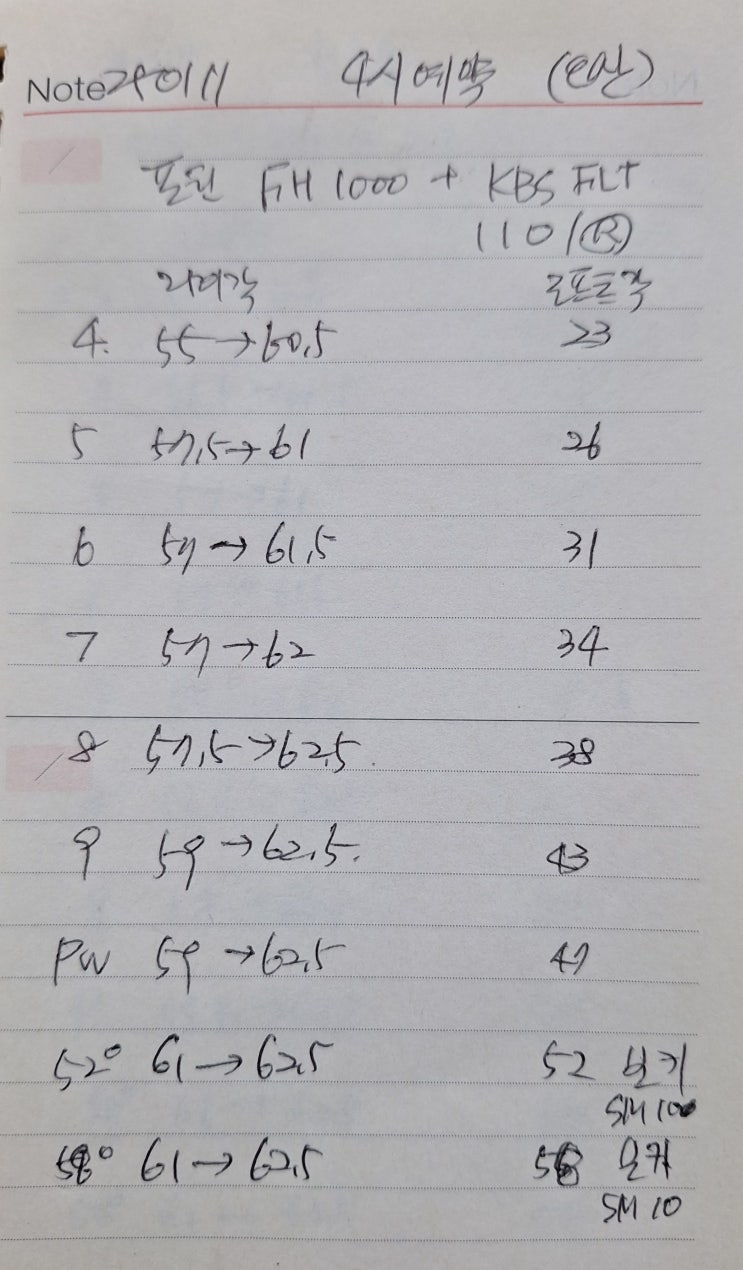 Note 4시예약 (일산)
포틴 FH 1000 + KBS FLT
110 / Ⓡ
라이각 로프트각
4. 55 → 60.5 23
5 57.5 → 61 26
6 57 → 61.5 31
7 57 → 62 34
8 57.5 → 62.5 38
9 59 → 62.5 43
PW 59 → 62.5 47
52° 61 → 62.5 52 보키
SM 10
58° 61 → 62.5 58 보키
SM 10